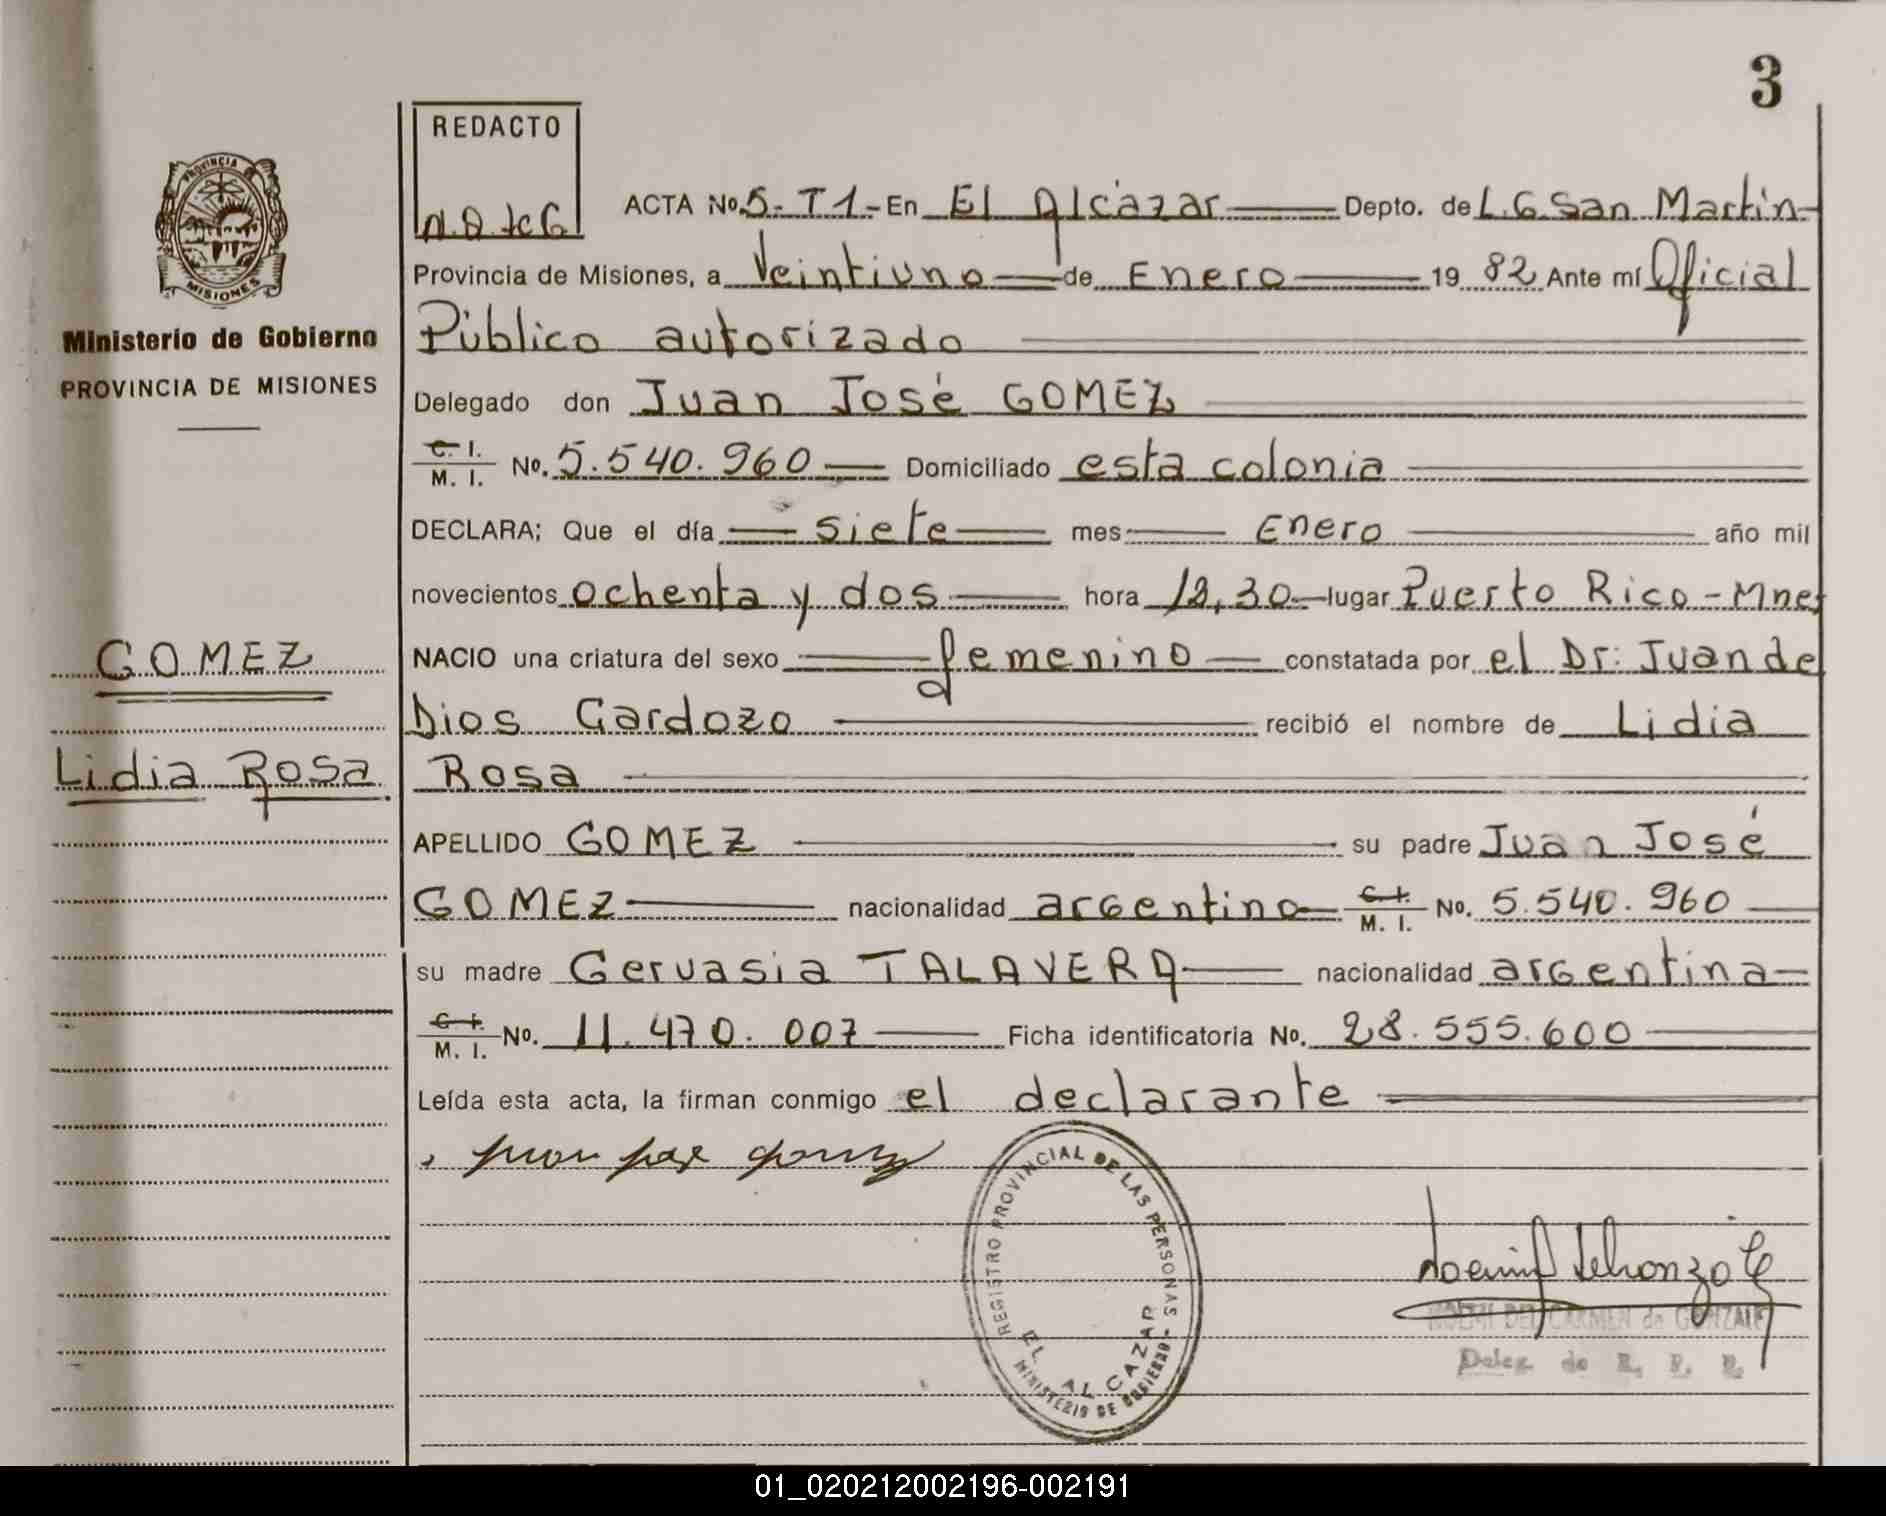 3
REDACTO
PROVINCIA DE
MISIONES
ACTA No. 5- T1 - En El Alcázar Depto. de L.G. San Martin
N.D. de G
Provincia de Misiones, a Veintiuno de Enero 19 82 Ante mí Oficial
Ministerio de Gobierno
Público autorizado
PROVINCIA DE MISIONES
Delegado don Juan José GOMEZ
C. I. M. I. No. 5.540.960 Domiciliado esta colonia
DECLARA; Que el día siete mes Enero año mil
novecientos ochenta y dos hora 12,30 lugar Puerto Rico - Mnes
GOMEZ
NACIO una criatura del sexo femenino constatada por el Dr: Juan de
Dios Cardozo recibió el nombre de Lidia
Lidia Rosa
Rosa
APELLIDO GOMEZ su padre Juan José
GOMEZ nacionalidad argentino C. I. M. I. No. 5.540.960
su madre Gervasia TALAVERA nacionalidad argentina
C. I. M. I. No. 11.470.007 Ficha identificatoria No. 28.555.600
Leída esta acta, la firman conmigo el declarante
Juan jose gomez
REGISTRO PROVINCIAL DE LAS PERSONAS
EL ALCAZAR
MINISTERIO DE GOBIERNO
NOEMI DEL CARMEN de GONZALEZ
Deleg. de R. P. P.
01_020212002196-002191